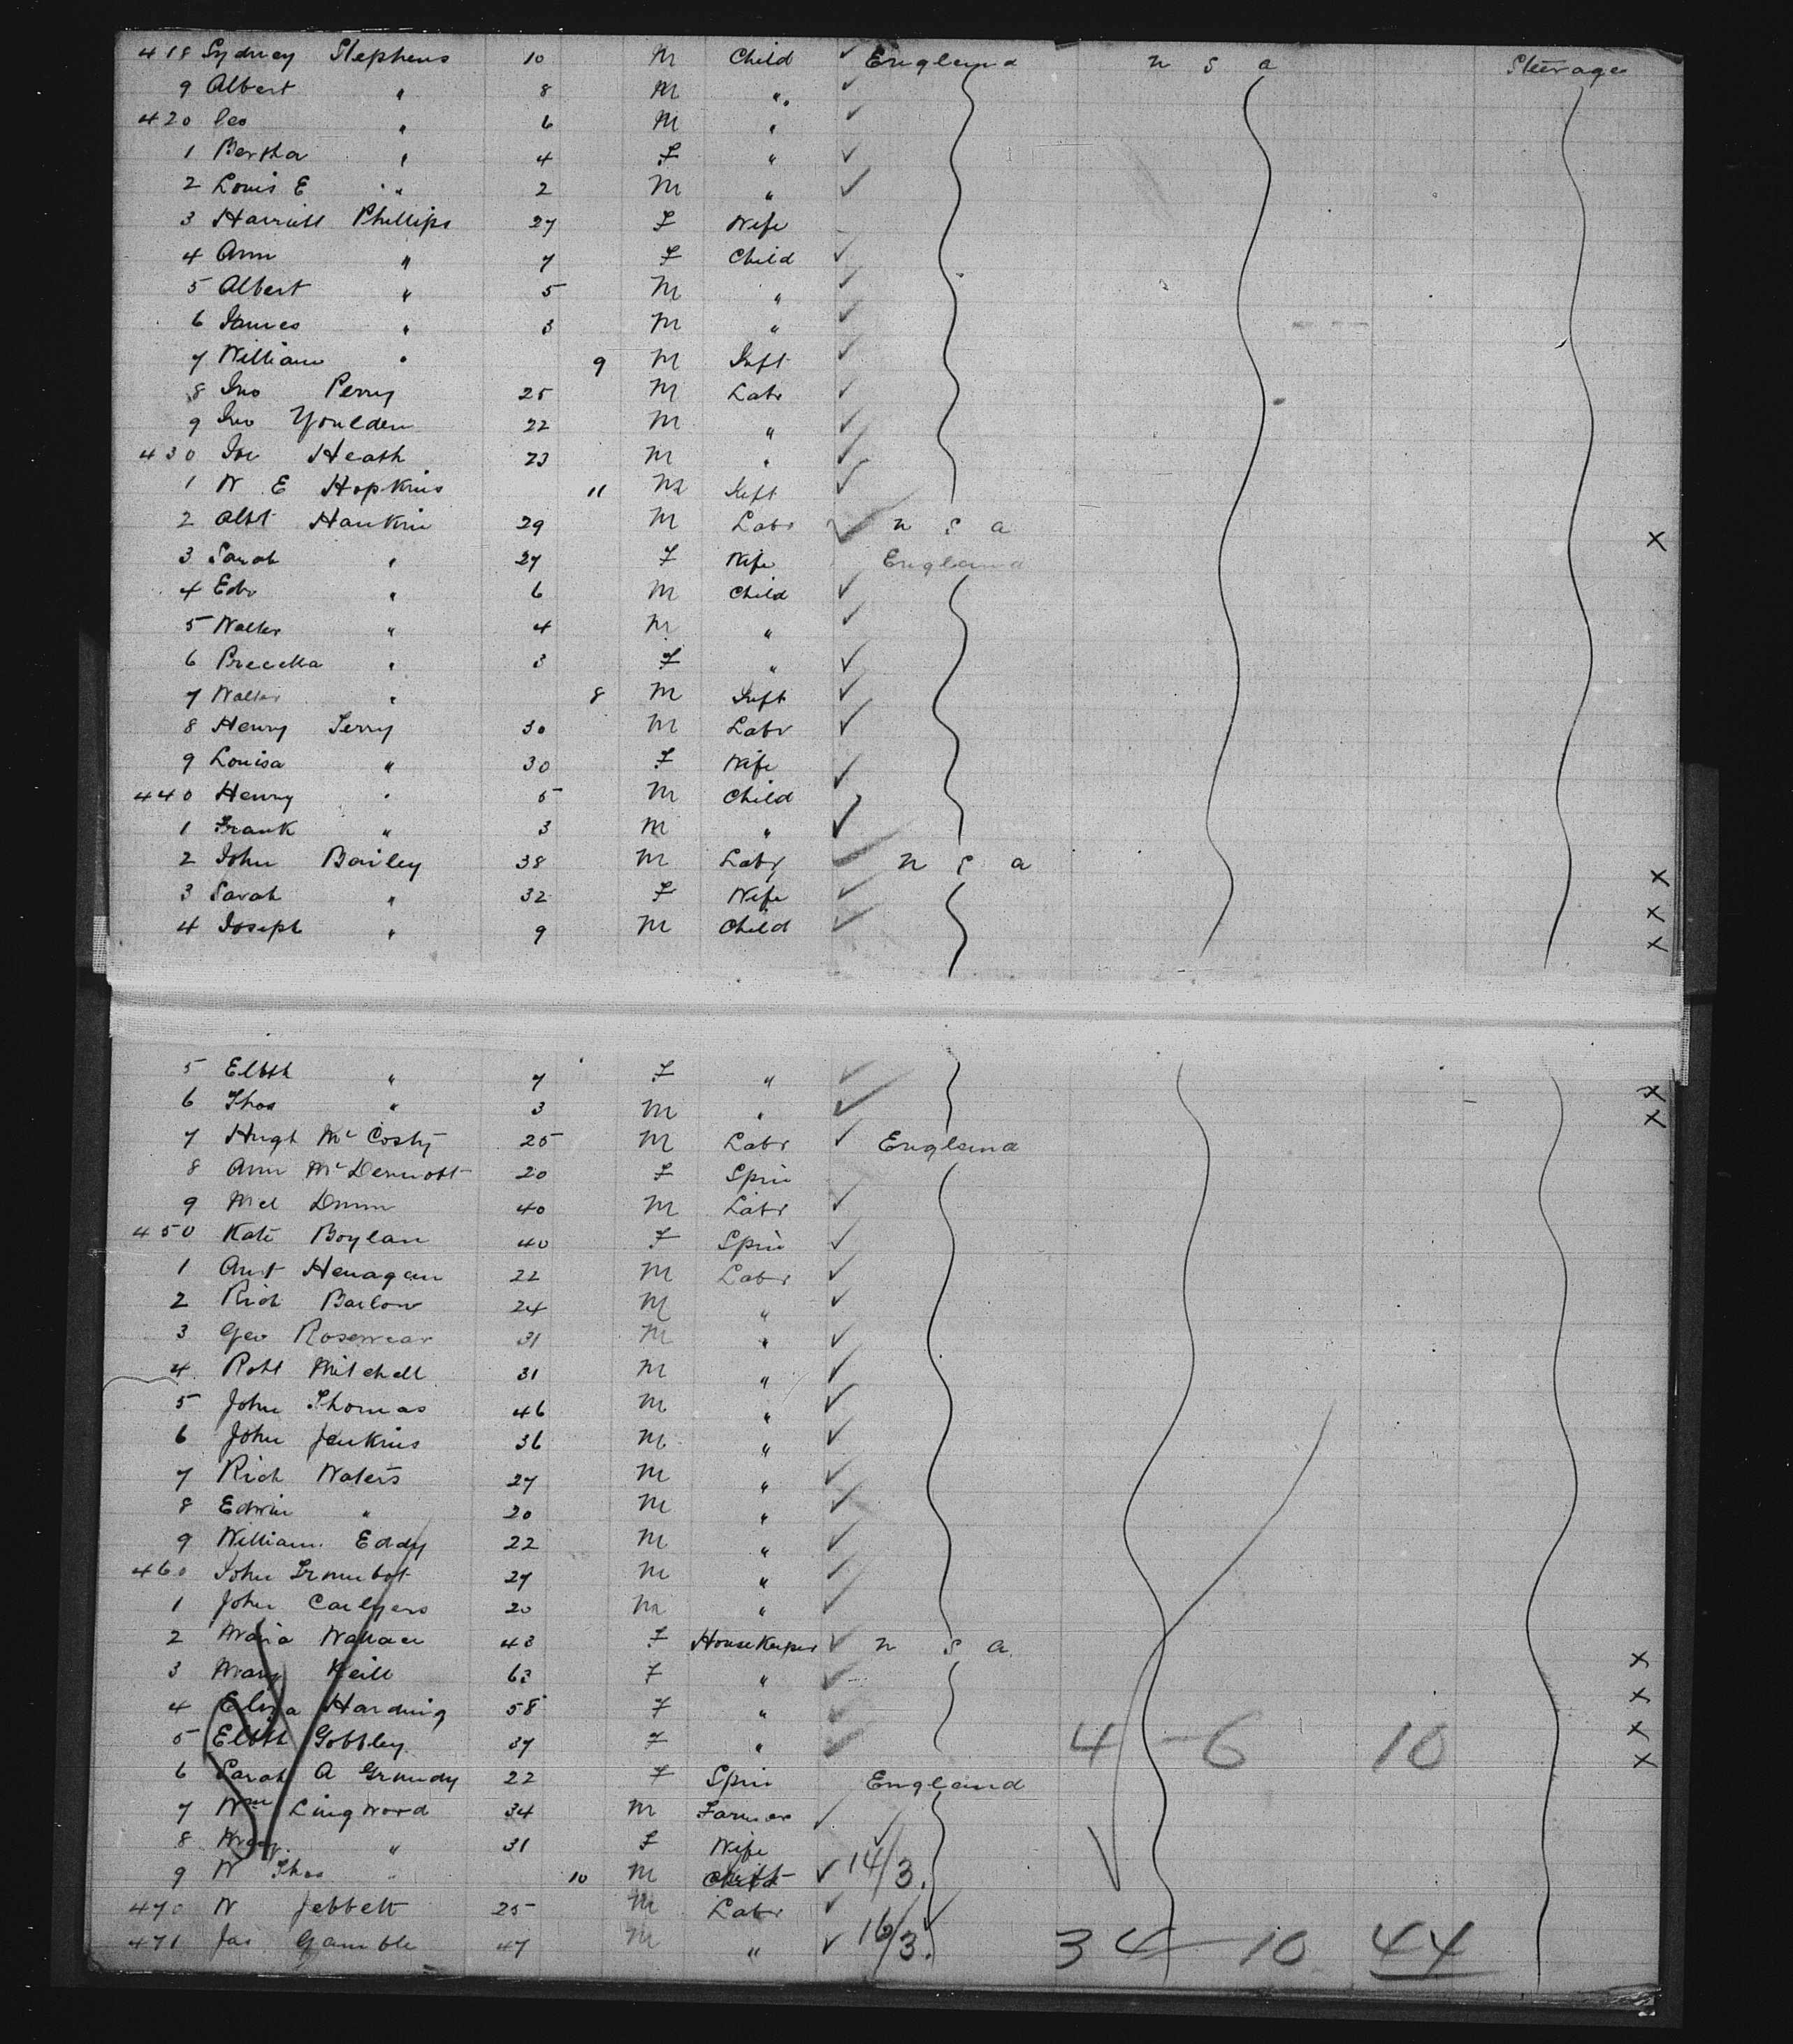 418 Sydney Stephens 10 M Child ✓ England n s a Steerage
9 Albert " 8 M " ✓
420 Geo " 6 M " ✓
1 Bertha " 4 F " ✓
2 Louis E " 2 M " ✓
3 Harriett Phillips 27 F Wife
4 Ann " 7 F Child ✓
5 Albert " 5 M " ✓
6 James " 3 M " ✓
7 William " 9 M Inft ✓
8 Jno Perry 25 M Labr ✓
9 Jno Youlden 22 M " ✓
430 Joe Heath 23 M " ✓
1 W E Hopkins 11 M Inft ✓
2 Albt Hankin 29 M Labr ✓ n s a x
3 Sarah " 27 F Wife England
4 Edw " 6 M Child ✓
5 Walter " 4 M " ✓
6 " 3 F " ✓
7 Walter " 8 M Inft ✓
8 Henry Terry 30 M Labr ✓
9 Louisa " 30 F Wife
440 Henry " 5 M Child ✓
1 Frank " 3 M " ✓
2 John Bailey 38 M Labr ✓ n s a x
3 Sarah " 32 F Wife ✓ x x
4 Joseph " 9 M Child ✓ x x
5 Elbth " 7 F " ✓ x x
6 Thos " 3 M " ✓ x
7 Hugh McCosty 25 M Labr ✓ England
8 Ann McDermott 20 F Spin
9 Mcl Dunn 40 M Labr ✓
450 Kate Boylan 40 F Spin ✓
1 Ant Henagan 22 M Labr ✓
2 Rich Barlow 24 M " ✓
3 Geo Rosewear 31 M " ✓
4 Robt Mitchell 31 M " ✓
5 John Thomas 46 M " ✓
6 John Jenkins 36 M " ✓
7 Rich Waters 27 M " ✓
8 Edwin " 20 M " ✓
9 William Eddy 22 M " ✓
460 John 27 M " ✓
1 John Carlyers 20 M " ✓
2 Maria Wallace 43 F HouseKeeper ✓ n s a x
3 Mary Neill 63 F " ✓ x
4 Eliza Harding 58 F " ✓ x
5 Elbth Gobbley 37 F " ✓ 4 - 6 10 x
6 Sarah A Grundy 22 F Spin England
7 Wm Lingword 34 M Farmer ✓
8 Mary " 31 F Wife
9 W Thos " 10 M ✓ 14/3.
470 W Jebbett 25 M Labr ✓
471 Jas Gamble 47 M " ✓ 16/3. 34 - 10 44